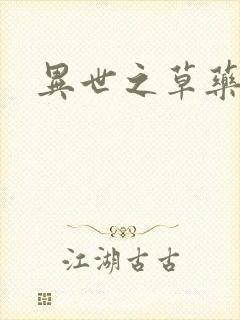 異世之草藥
江湖古古